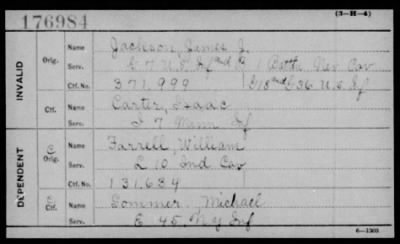 176984
(3-H-4)
INVALID
Orig.
Name Jackson, James J.
Serv. G 7 U.S. Inf and 1 Battn Nev Cav
Ctf. No. 371,999 G 18 and C 36 U.S. Inf
Ctf.
Name Carter, Isaac
Serv. I 7 Minn Inf
DEPENDENT
C
Orig.
Name Farrell, William
Serv. L 10 Ind Cav
Ctf. No. 131,634
C
Ctf.
Name Sommer, Michael
Serv. E 45 N.Y. Inf
6-1303